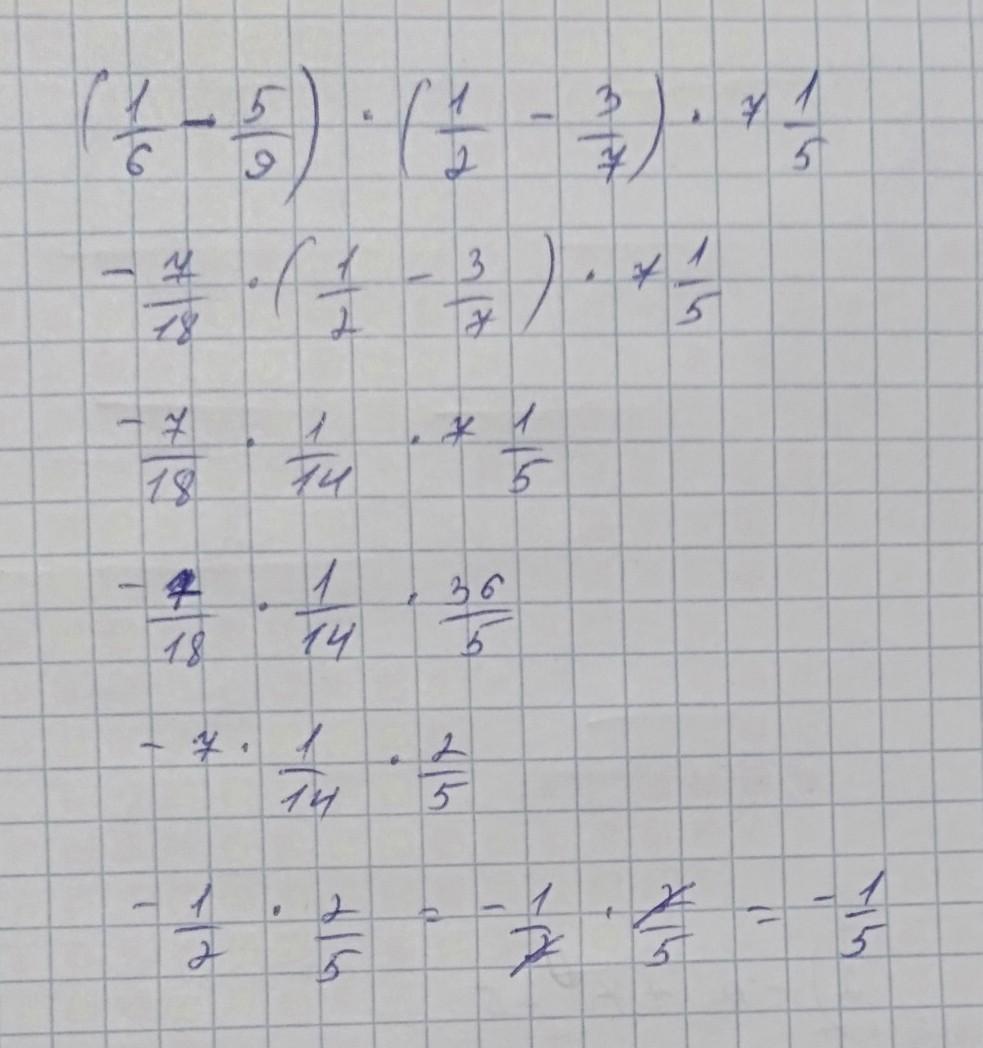 (1/6 - 5/9) · (1/2 - 3/7) · 7 1/5
- 7/18 · (1/2 - 3/7) · 7 1/5
- 7/18 · 1/14 · 7 1/5
- 7/18 · 1/14 · 36/5
- 7 · 1/14 · 2/5
- 1/2 · 2/5 = - 1/2 · 2/5 = - 1/5